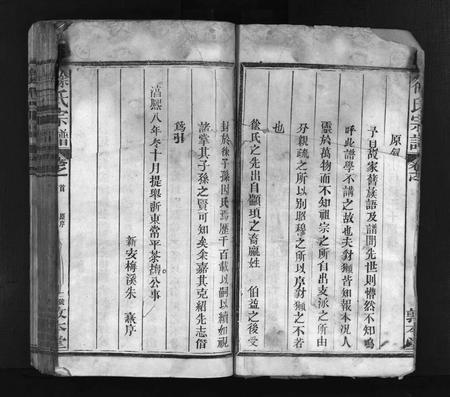 徐氏宗譜
原敘
予曰故家舊族語及譜問先世則懵然不知嗚
呼此譜學不講之故也夫豺獺皆知報本況人
靈於萬物而不知祖宗之所自出支派之所由
分親疏之所以別昭穆之所以序豺獺之不若
也
徐氏之先出自顓頊之裔嬴姓 伯益之後受
封於徐子孫因氏焉歷千百載以嗣以續如視
諸掌其子孫之賢可知矣余嘉其克紹先志僭
為引
淳熙八年冬十月提舉浙東常平茶鹽公事
新安梅溪朱 熹序
徐氏宗譜
卷之首
原序
敦本堂